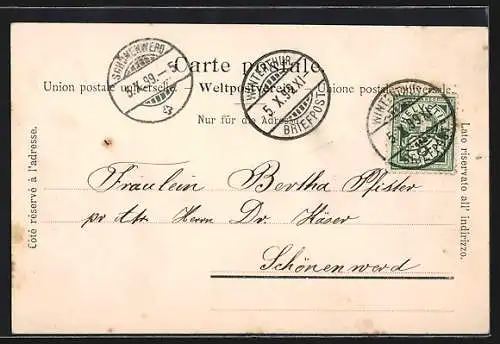 Carte postale
Union postale universelle. Weltpostverein. Unione postale universale.
Nur für die Adresse.
Côté réservé à l'adresse.
Lato riservato all' indirizzo.
SCHÖNENWERD
WINTERTHUR
5.X.99.XI-
BRIEFPOST
WINTERTHUR
Fräulein Bertha Pfister
pr Adr. Herrn Dr.
Schönenwerd